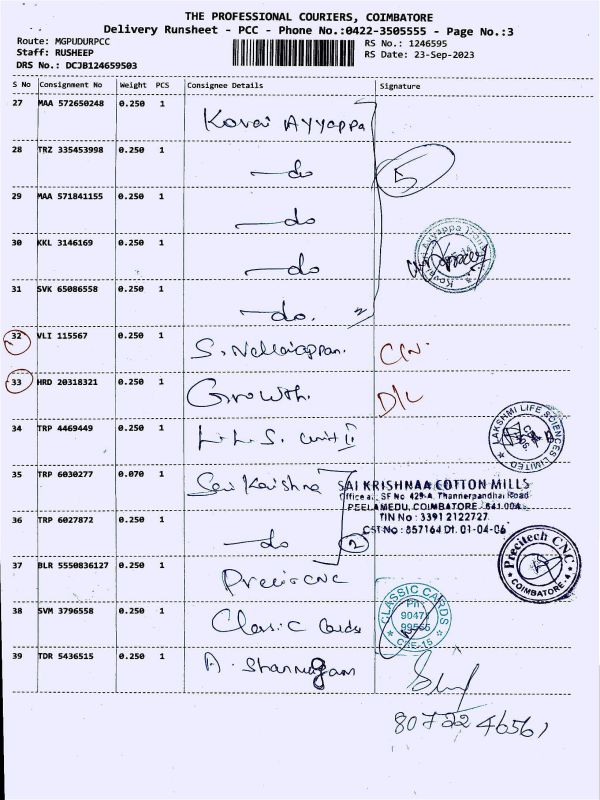 THE PROFESSIONAL COURIERS, COIMBATORE
Delivery Runsheet - PCC - Phone No.:0422-3505555 - Page No.:3
Route: MGPUDURPCC
RS No.: 1246595
Staff: RUSHEEP
RS Date: 23-Sep-2023
DRS No.: DCJB124659503
S No Consignment No Weight PCS Consignee Details Signature
27 MAA 572650248 0.250 1 Kovai Ayyappa
28 TRZ 335453998 0.250 1 —do 5
29 MAA 571841155 0.250 1 —do
30 KKL 3146169 0.250 1 —do
31 SVK 65086558 0.250 1 —do.
32 VLI 115567 0.250 1 S. Nellaiappan.
33 HRD 20318321 0.250 1 Growth. D/L
34 TRP 4469449 0.250 1 L.L.S. unit II
LAKSHMI LIFE SCIENCES LIMITED
35 TRP 6030277 0.070 1 Sai Krishna
SAI KRISHNAA COTTON MILLS
Office at, SF No 429-A, Thannerpandhal Road
PEELAMEDU, COIMBATORE - 641 004.
TIN No : 33912122727
CST No : 857164 Dt. 01-04-06
36 TRP 6027872 0.250 1 —do 2
37 BLR 5550836127 0.250 1 Preci CNC
Precitech CNC
COIMBATORE-4
38 SVM 3796558 0.250 1 Classic Cards
CLASSIC CARDS
Ph:
90474
99565
CBE-15
39 TDR 5436515 0.250 1 A. Shanmugam
8072246561